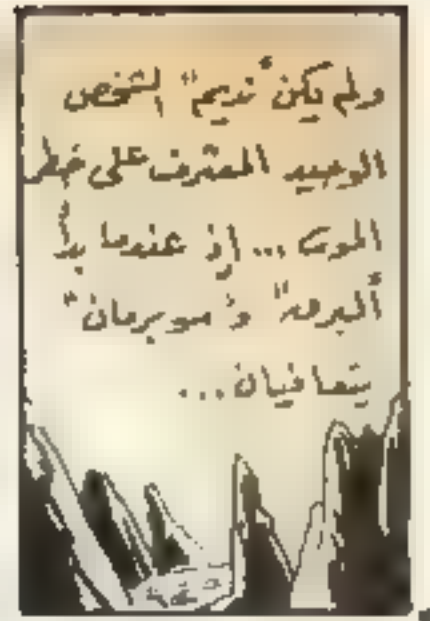 ولم يكن "نديم" الشخص
الوحيد المشرف على خطر
الموت ... إذ عندما بدأ
"البرق" و "سوبرمان"
يتعافيان ...